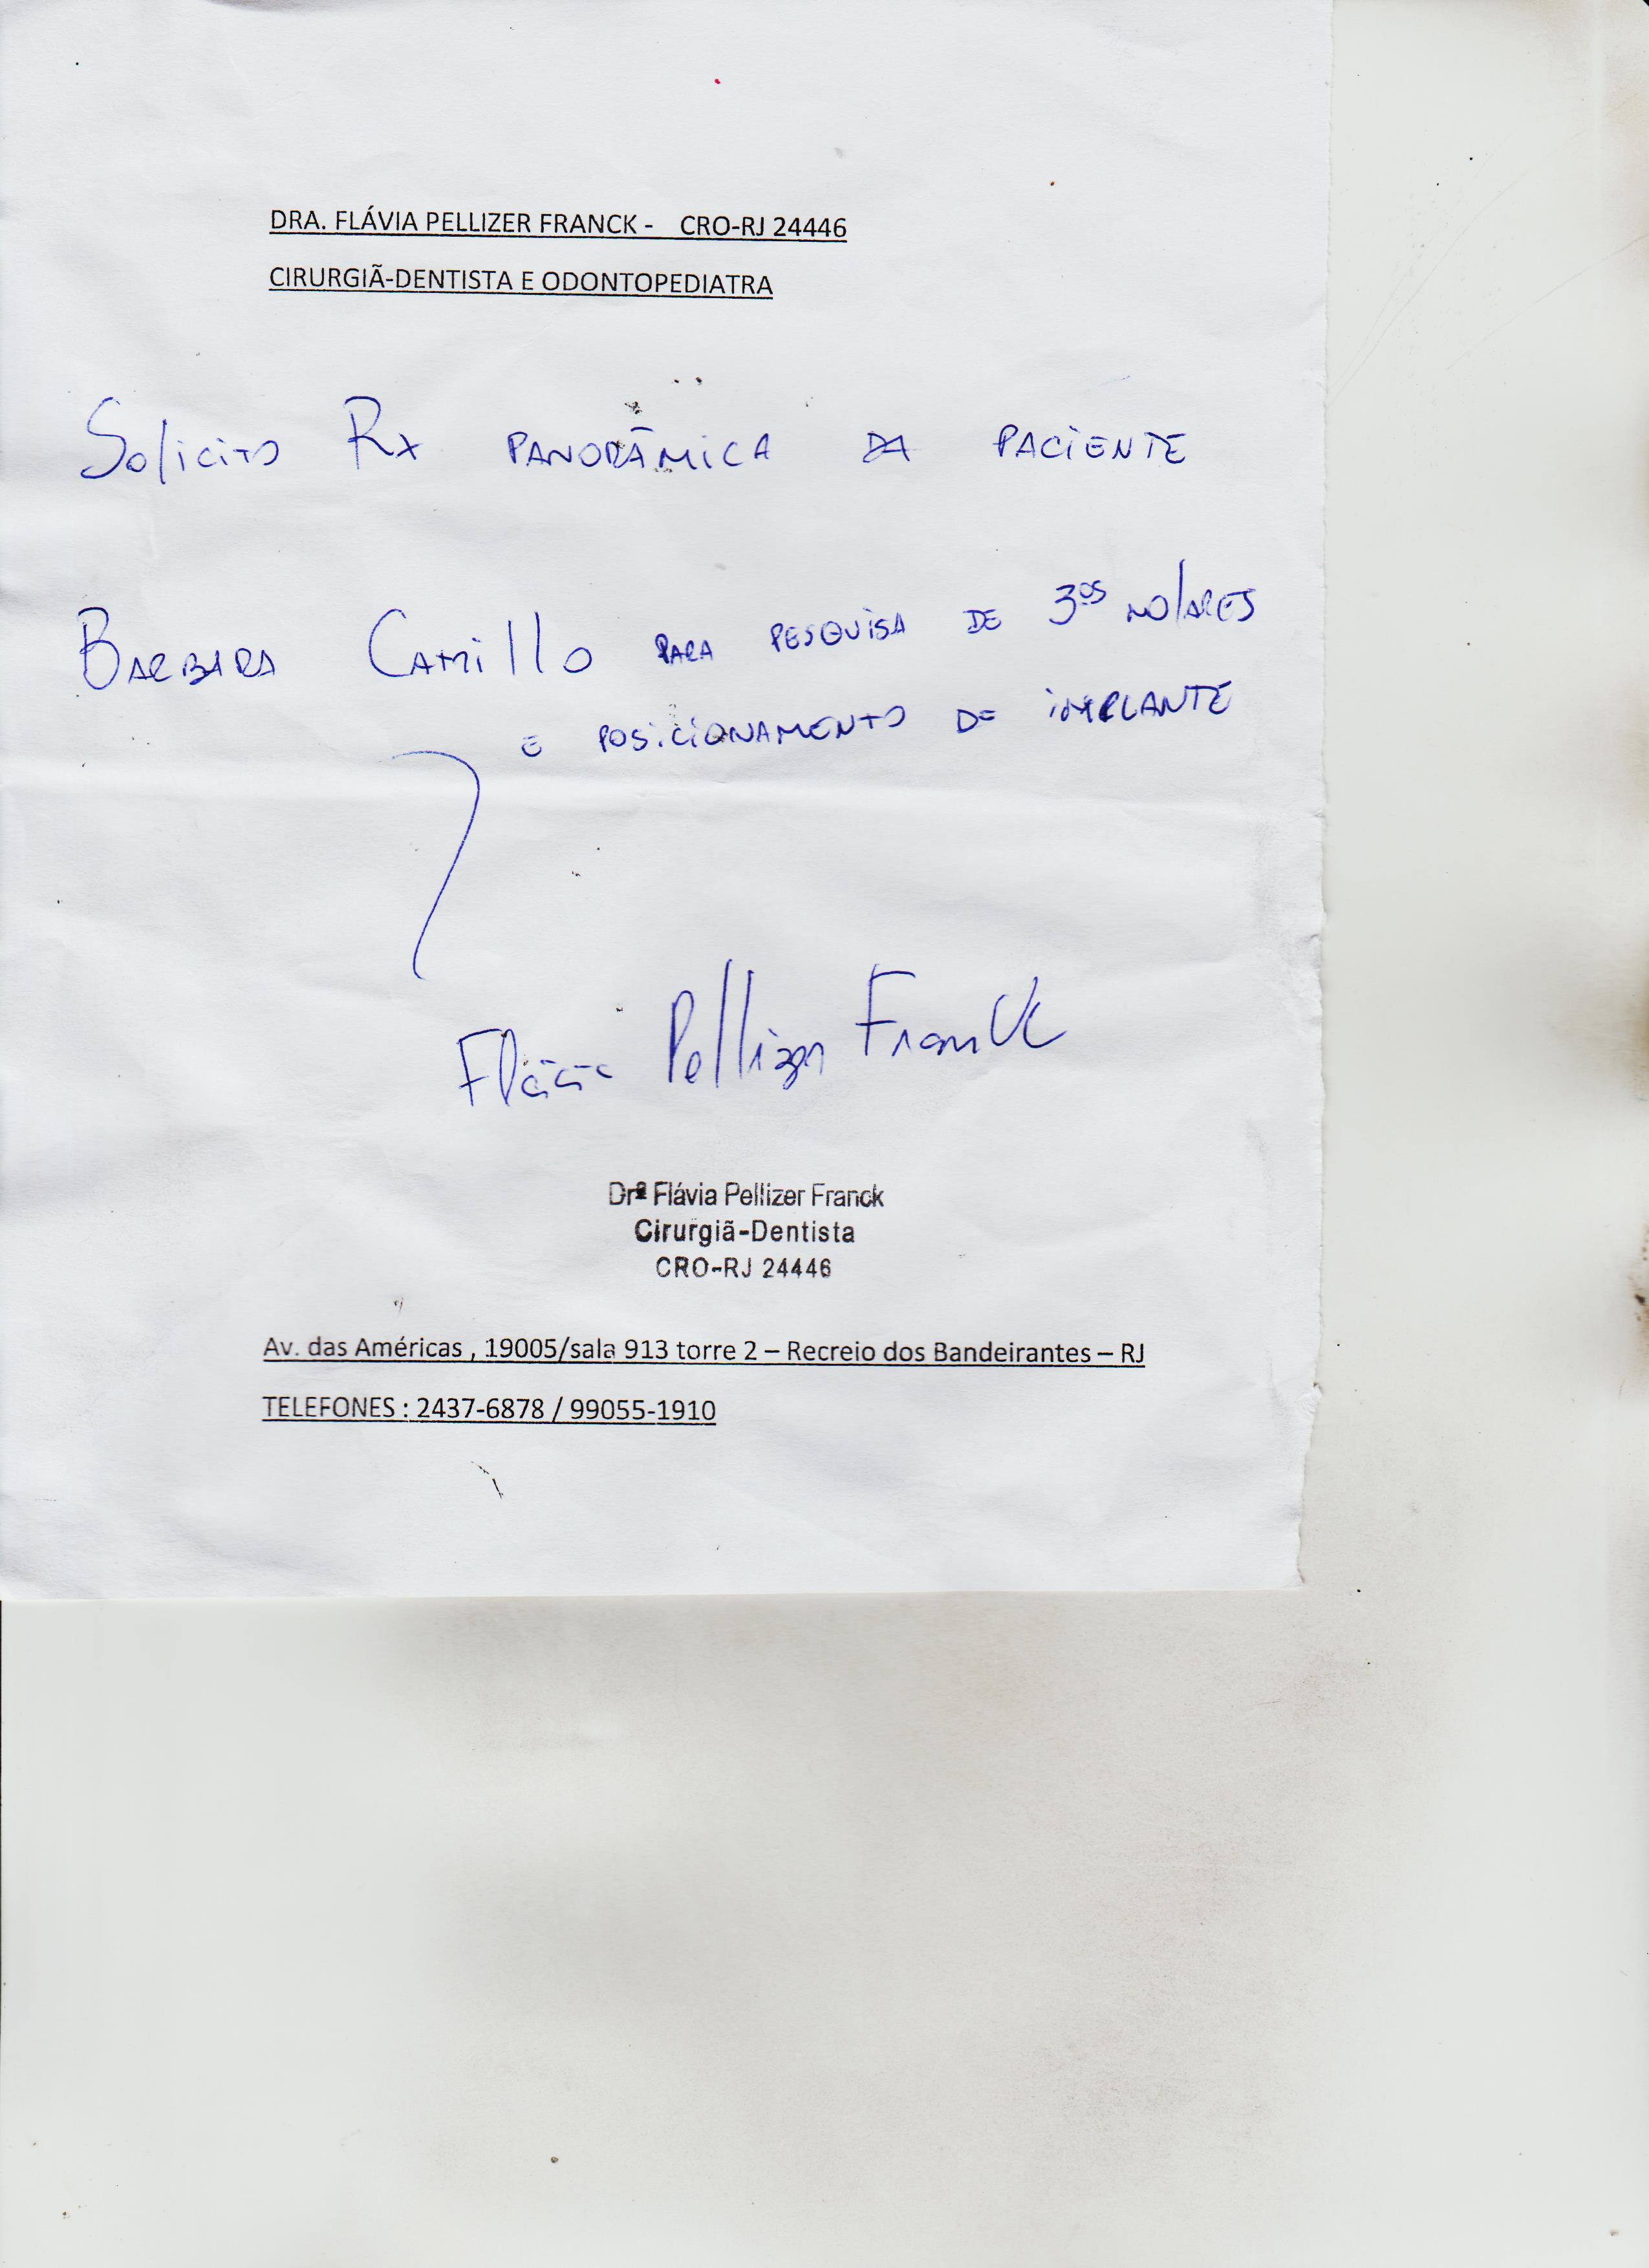 DRA. FLÁVIA PELLIZER FRANCK - CRO-RJ 24446
CIRURGIÃ-DENTISTA E ODONTOPEDIATRA
Solicito Rx PANORÂMICA DA PACIENTE
BARBARA CAMILLO PARA PESQUISA DE 3ºs MOLARES
E POSICIONAMENTO DE IMPLANTE
Flávia Pellizer Franck
Drª Flávia Pellizer Franck
Cirurgiã-Dentista
CRO-RJ 24446
Av. das Américas , 19005/sala 913 torre 2 – Recreio dos Bandeirantes – RJ
TELEFONES : 2437-6878 / 99055-1910